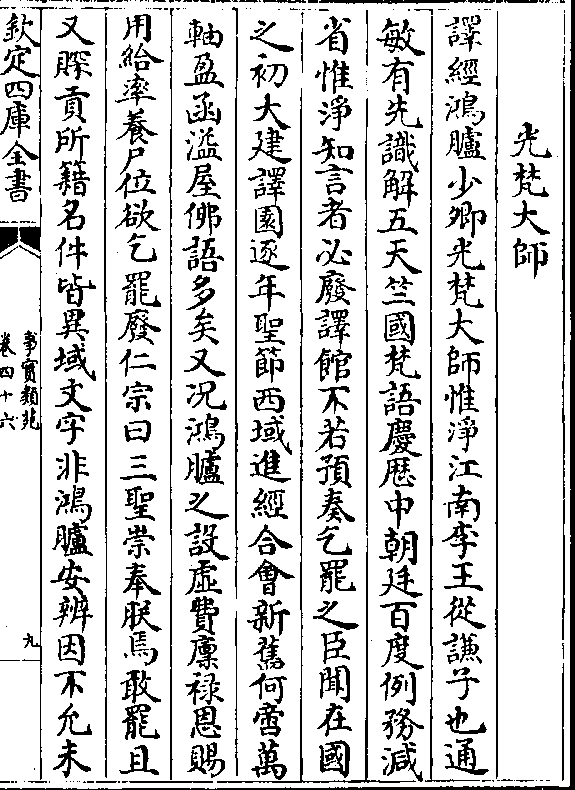 光梵大師
譯經鴻臚少卿光梵大師惟淨江南李王從謙子也通
敏有先識解五天竺國梵語慶歴中朝廷百度例務減
省惟淨知言者必廢譯館不若預奏乞罷之臣聞在國
之初大建譯園逐年聖節西域進經合會新舊何啻萬
軸盈函溢屋佛語多矣又况鴻臚之設虛費廩禄恩賜
用給率養尸位欲乞罷廢仁宗曰三聖崇奉朕焉敢罷且
又睬貢所籍名件皆異域文字非鴻臚安辨因不允未
欽定四庫全書
事實類苑
卷四十六
九